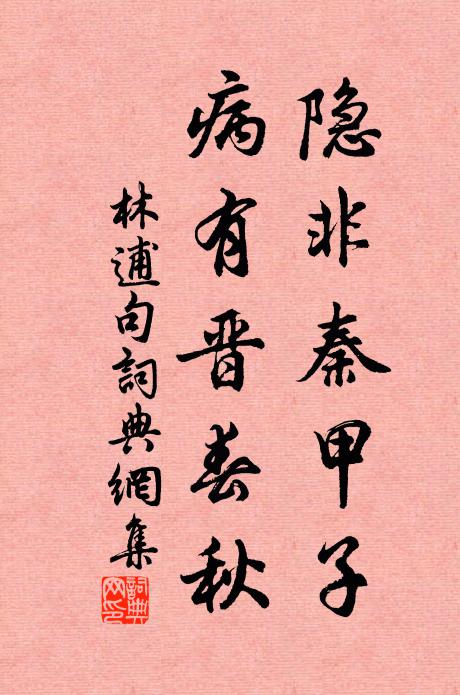 隐非秦甲子
病有晋春秋
林逋句詞典網集
詞典網印